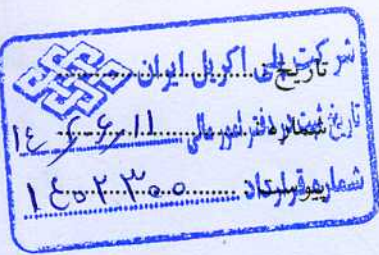 شرکت پلی اکریل ایران
تاریخ
تاریخ ثبت در دفتر امور مالی
شماره
شماره قرارداد ۱۴۰۲۳۰۰
پیوست